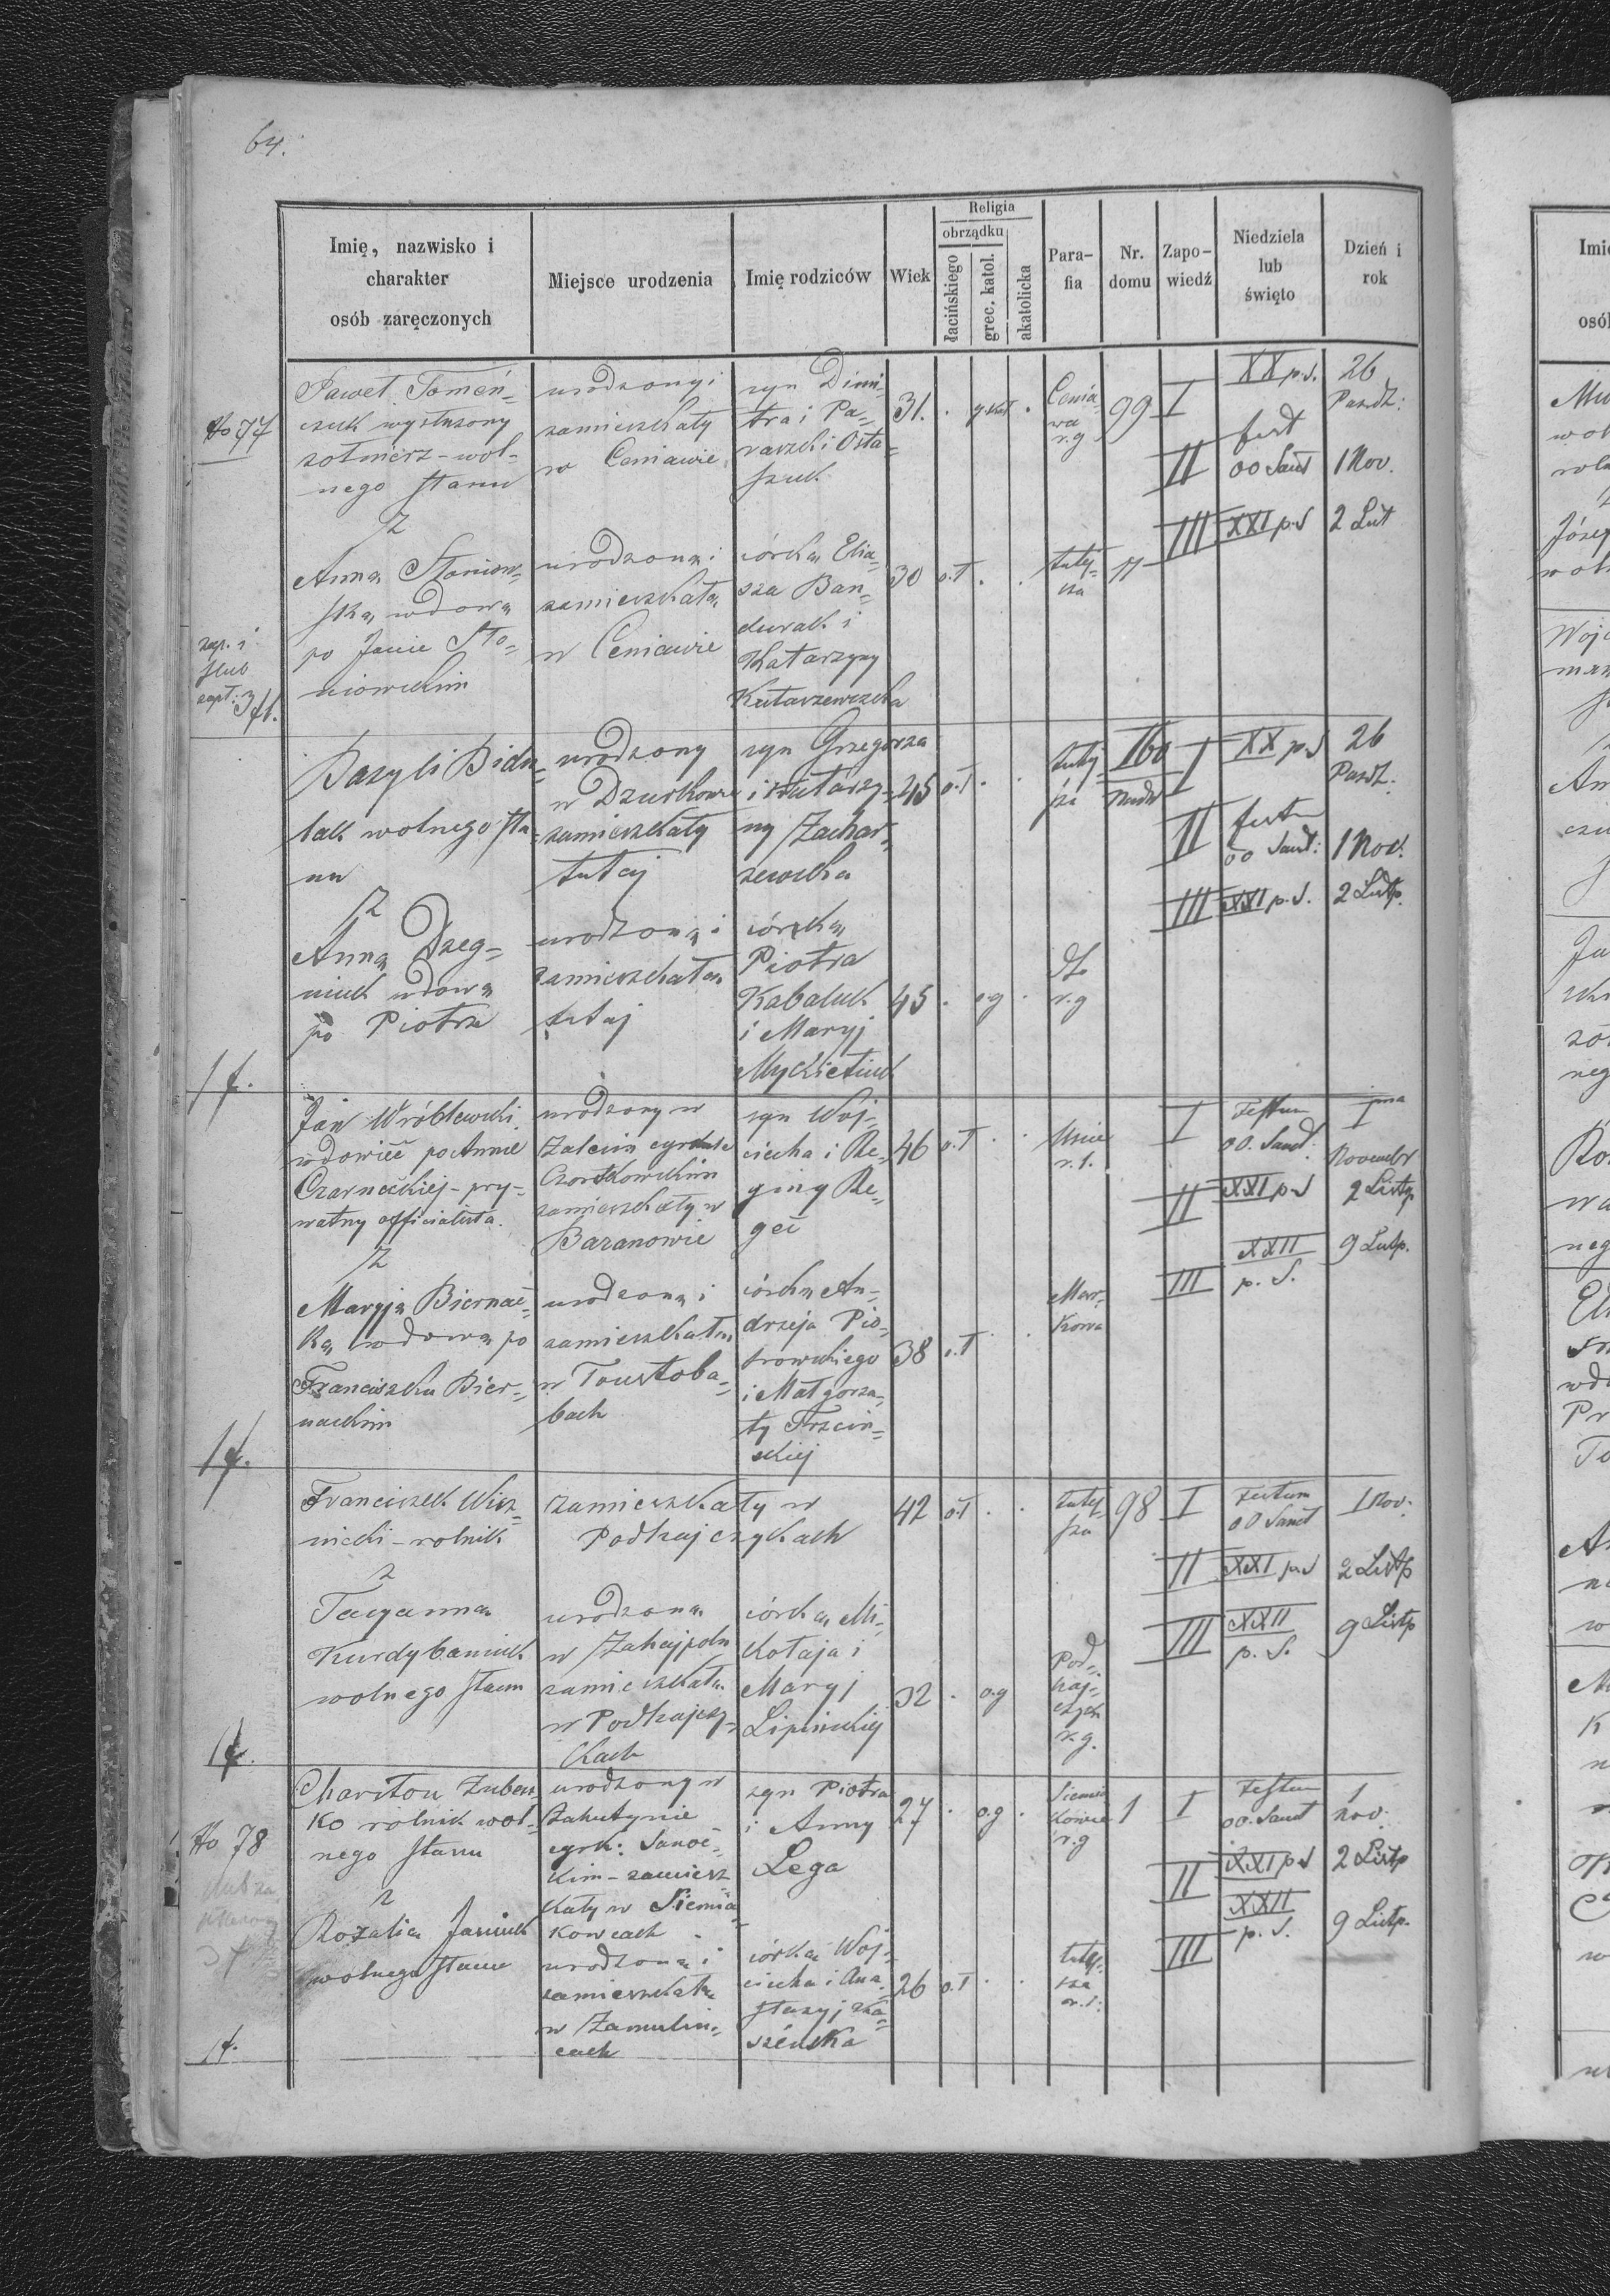 64.
Imię, nazwisko i
charakter
osób zaręczonych
Miejsce urodzenia
Imię rodziców
Wiek
Religia
obrządku
łacińskiego
grec. katol.
akatolicka
Para-
fia
Nr.
domu
Zapo-
wiedź
Niedziela
lub
święto
Dzień i
rok
No 77
Paweł Tomeń=
czuk wysłużony
żołnierz - wol-
nego stanu
z
urodzony i
zamieszkały
w Ceniawie
syn Dimi-
tra i Pa-
raszki Osta-
szuk
31.
g. kat
Cenia-
wa
r. g
99
I
XX p. S.
26
Pazdz:
II
fest
OO Sanct
1 Nov.
III
XXI p. S
2 List
Anna Stoniow-
ska, wdowa
po Janie Sto-
niowskim
urodzona i
zamieszkała
w Ceniawie
córka Elia-
sza Ban-
durak i
Katarzyny
30
o. ł
tutej-
sza
11
zap. i
ślub
zapł: 3 fl.
Bazyli Bidu-
lak wolnego sta-
nu
z
urodzony
w Dzurkowie
zamieszkały
tutaj
syn Grzegorza
i Katarzy-
ny Zachar-
zewska
45
o. ł
tutej
sza
160
I
XX p. S
26
Pazdz.
II
festum
OO Sanct:
1 Nov.
III
XXI p. S.
2 Listp.
Anna
wdowa
po Piotrze
urodzona i
zamieszkała
tutaj
córka
Piotra
Kabaluk
i Maryj
Mykietiuk
45
o. g
r. g
1 f.
Jan Wróblewski
wdowiec po Annie
Czarneckiej - pry-
watny officialista.
z
urodzony w
Zalesiu cyrkule
Czortkowskim
zamieszkały w
Baranowie
syn Woj-
ciecha i Re-
giny Re-
geć
46
o. ł
r. ł.
I
Festum
OO. Sanct.
1ma
Novembr
II
XXI p. S
2 Listp
III
XXII
p. S.
9 Listp.
Maryja Biernac-
ka wdowa po
Franciszku Bier-
nackim
urodzona i
zamieszkała
w Toustoba-
bach
córka An-
drzeja Pio-
trowskiego
i Małgorza-
ty Trzciń-
skiej
38
o. ł
1 f.
Franciszek Wisz-
nicki - rolnik
z
zamieszkały w
Podhajczykach
42
o. ł
tutej-
sza
98
I
Festum
OO Sanct
1 Nov.
II
XXI p. S
2 Listp
III
XXII
p. S.
9 Listp
Tacyanna
Kurdybaniuk
wolnego stanu
urodzona
w Zahajpolu
zamieszkała
w Podhajczy-
kach
córka Mi-
kołaja i
Maryj
Lipińskiej
32
o. g
Pod-
haj-
czyki
r. g.
1 f.
No 78
Chariton Zuben-
ko rolnik wol-
nego stanu
z
urodzony w
Zahutynie
cyrk: Sanoc-
kim - zamiesz-
kały w Siemia-
kowcach
syn Piotra
i Anny
Lega
27
o. g
Siemia-
kowce
r. g
1
I
Festum
OO. Sanct
1
Nov.
II
XXI p. S
2 Listp
III
XXII
p. S.
9 Listp.
Rozalia Jasiuk
wolnego stanu
urodzona i
zamieszkała
w Zamulin-
cach
córka Woj-
ciecha i Ana-
stazyj
26
o. ł
tutej-
sza
r. ł.
1 f.